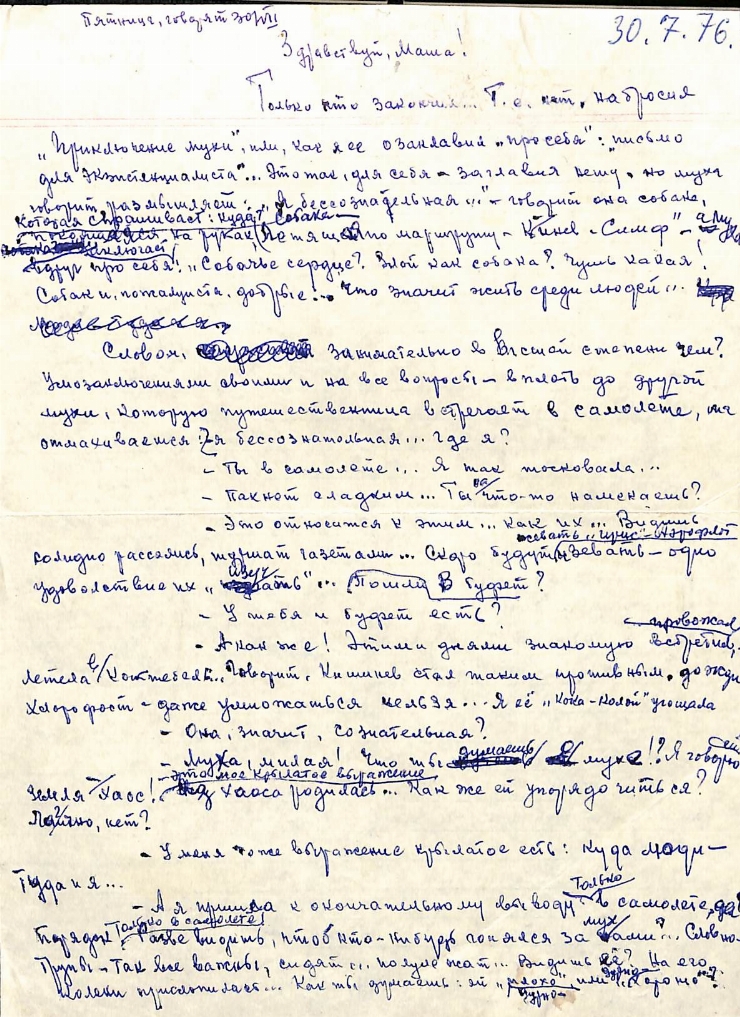 Пятница, говорят 30/VII
30.7.76.
Здравствуй, Маша!
Только что закончил... Т.е. нет, набросил
"Приключение мухи", или, как я ее озаглавил "про себя": "письмо
для экзистенциалиста"... Это так, для себя - заглавил вещу, но муха
говорит размышляет: "Я бессознательная..." - говорит она собаке,
которая спрашивает: куда? Собака -
на руках летящая по маршруту - Кишинев - Симф" -
включает
вдруг про себя: "Собачье сердце? Злой как собака? Чушь какая!
Собаки, пожалуйста, добрые!.. Что значит жить среди людей...
Словом, занимательно в высшей степени чем?
Умозаключениями своими и на все вопросы - вплоть до другой
мухи, которую путешественница встречает в самолете, та
отмахивается: я бессознательная... Где я?
- Ты в самолете... Я так тосковала...
- Пахнет сладким... Ты на что-то намекаешь?
- Это относится к этим... как их... Видишь
жевать "ирис" - Аэрофлот
солидно расселись, шуршат газетами... Скоро будут зевать - одно
удовольствие их "... Пошли в буфет?
- У тебя и буфет есть?
- А как же! Этими днями знакомую встретила, - провожая
летела в Коктебель... Говорит, Кишинев стал таким противным, дожди
хлорофост - даже умножаться нельзя... Я её "Кока-колой" угощала
- Она, значит, сознательная?
- Муха, милая! Что ты думаешь мухе!? Я говорю
- это мое крылатое выражение
Земля - Хаос! Из хаоса родилась... Как же ей упорядочиться?
Лётно, нет?
- У меня тоже выражение крылатое есть: куда люди -
туда и я...
- А я пришла к окончательному выводу: только в самолете, да
Порядок только в самолете! Разве видишь, чтоб кто-нибудь гонялся за мухами... Словно
трупы - так все важны, сидят... полулежат... Видишь её? На его
колени прислонилась... Как ты думаешь: ей "плохо" дурно - или "хорошо"?